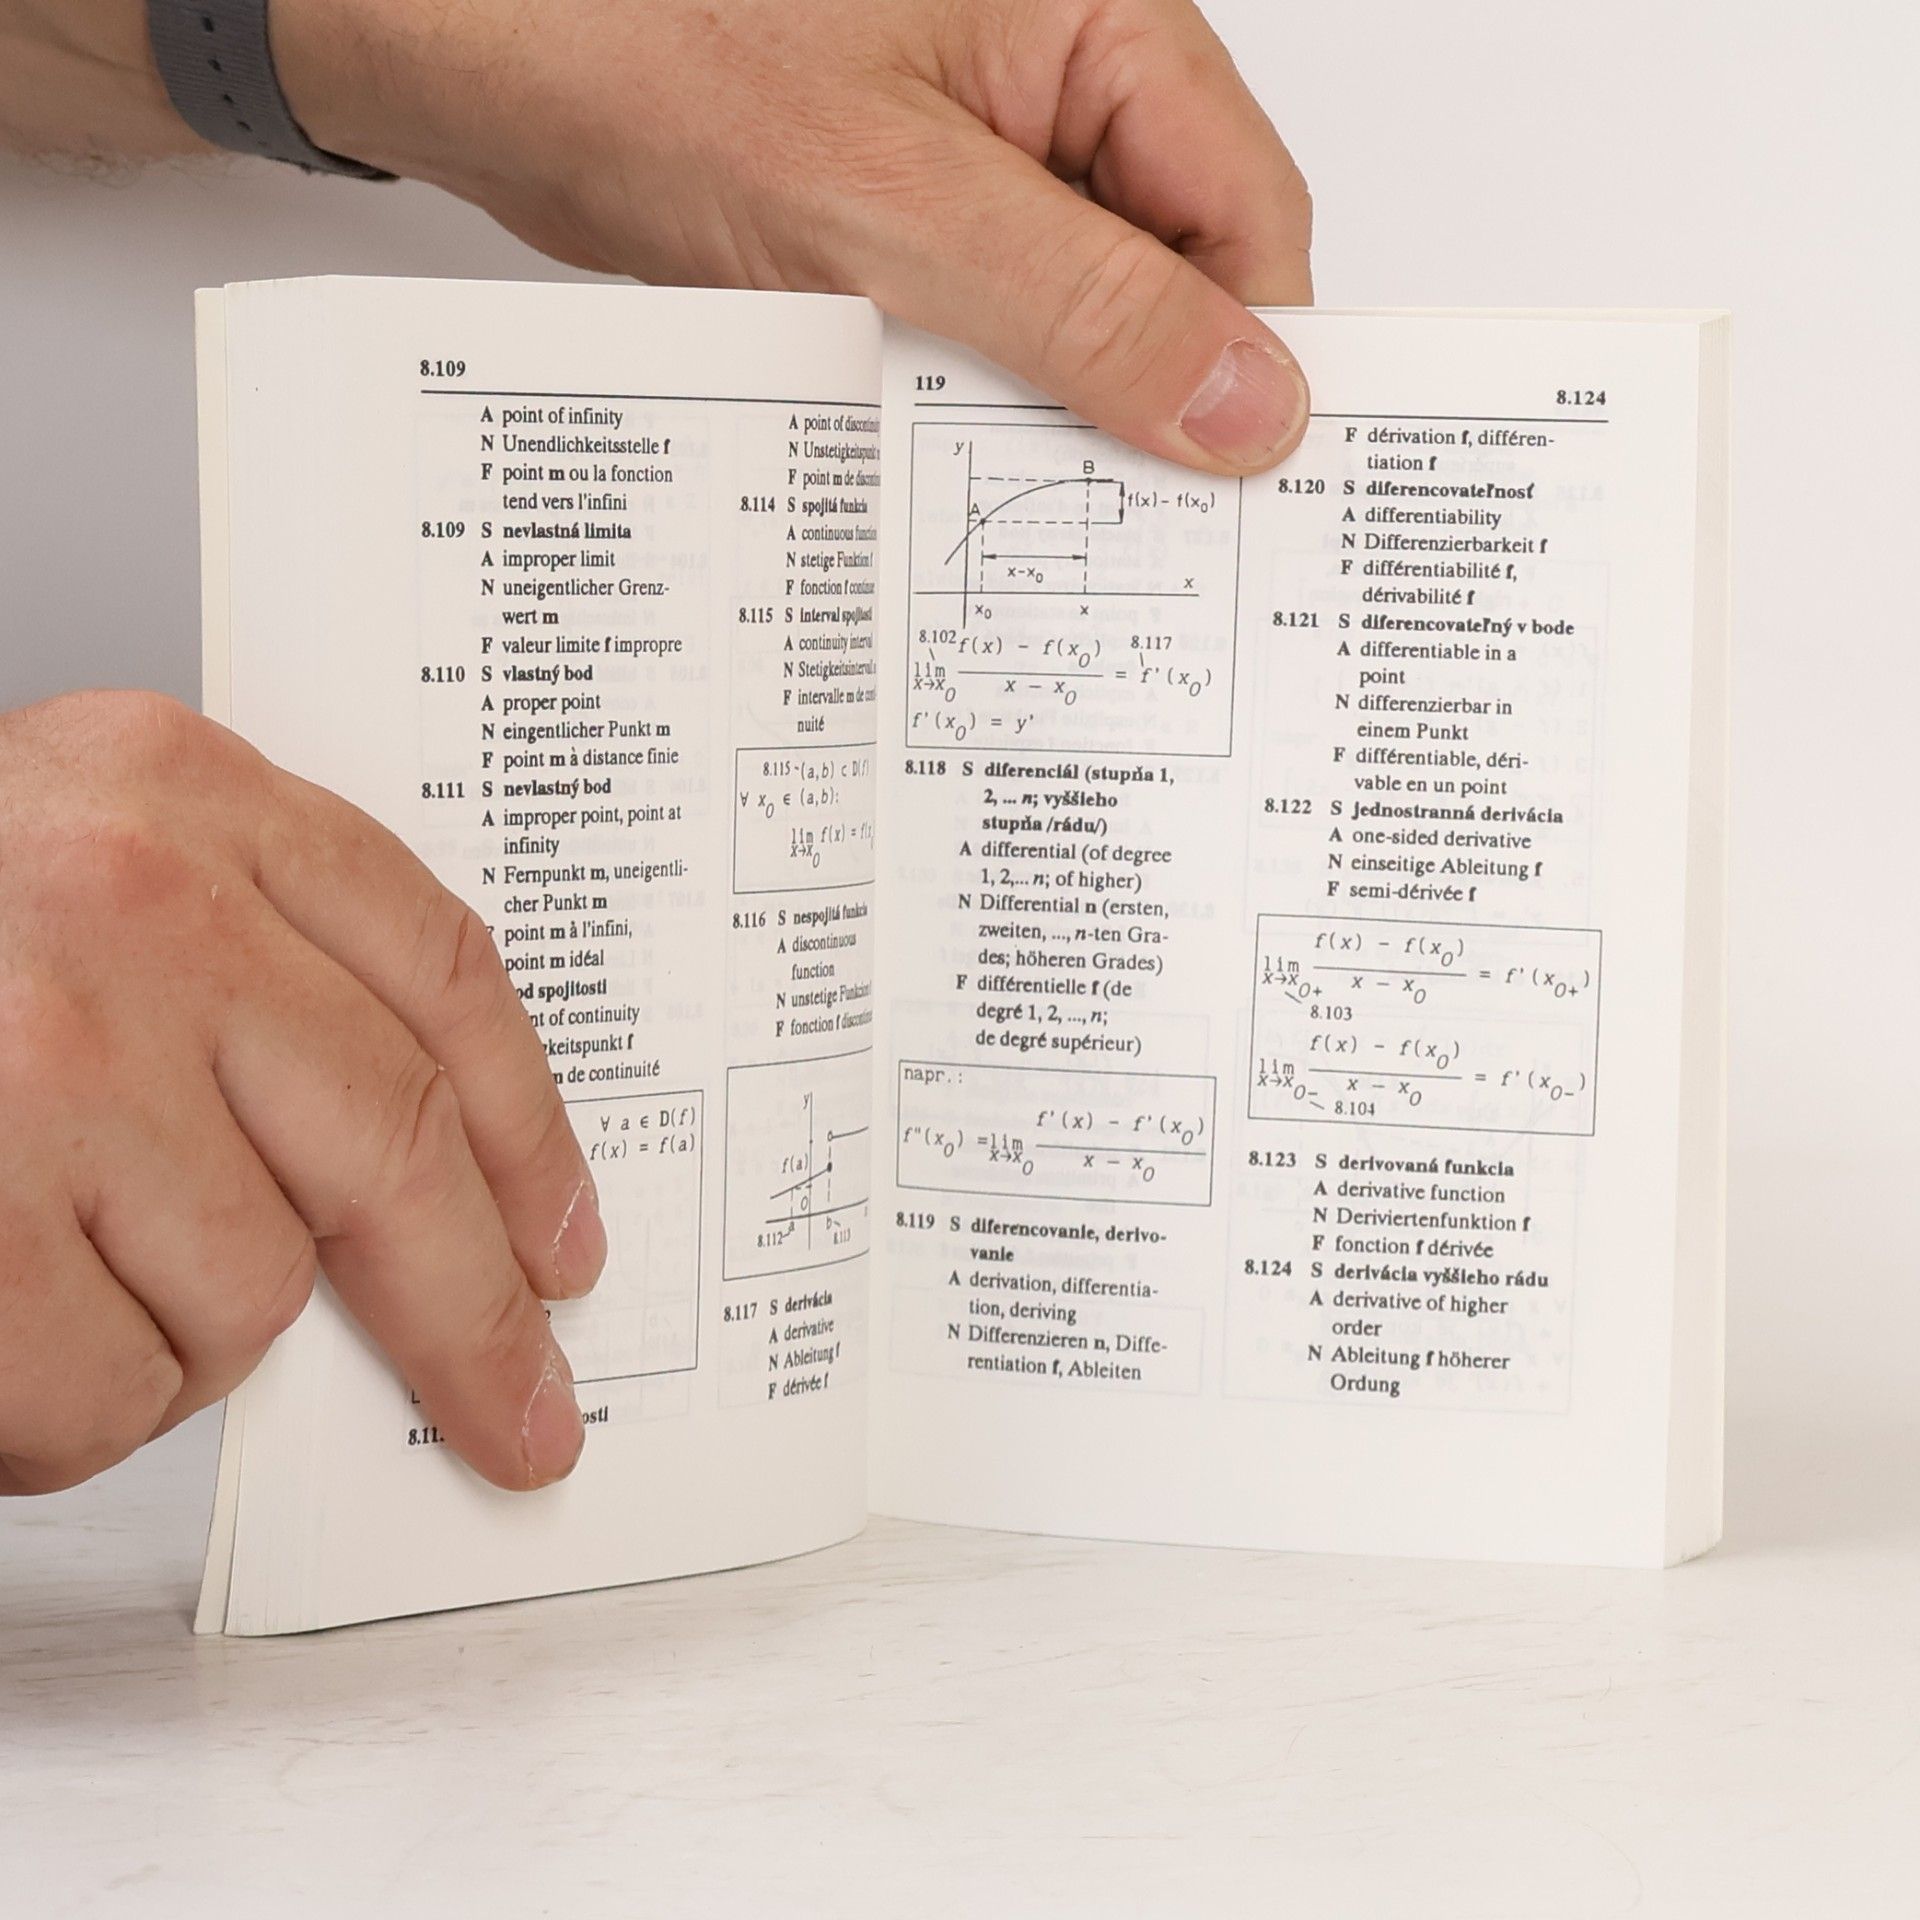 8.109
A point of infinity
N Unendlichkeitsstelle f
F point m ou la fonction
tend vers l'infini
8.109 S nevlastná limita
A improper limit
N uneigentlicher Grenz-
wert m
F valeur limite f impropre
8.110 S vlastný bod
A proper point
N eingentlicher Punkt m
F point m à distance finie
8.111 S nevlastný bod
A improper point, point at
infinity
N Fernpunkt m, uneigentli-
cher Punkt m
point m à l'infini,
point m idéal
od spojitosti
nt of continuity
keitspunkt f
m de continuité
∀ a ∈ D(f)
f(x) = f(a)
8.11.
osti
A point of
N Unstetigkeitspunkt
F point m de
8.114 S spojitá funkcia
A continuous function
N stetige Funktion f
F fonction f continue
8.115 S interval spojitosti
A continuity interval
N Stetigkeitsinterval
F intervalle m de con-
nuité
8.115 (a,b) ⊂ D(f)
∀ x0 ∈ (a,b):
lim f(x) = f(x
x→x0
8.116 S nespojitá funkcia
A discontinuous
function
N unstetige Funktion f
F fonction f
y
f(a)
0
a
b
8.112
8.113
8.117 S derivácia
A derivative
N Ableitung f
F dérivée f
119
8.124
y
B
A
f(x) - f(x0)
x-x0
x
x0
x
8.102 f(x) - f(x0) 8.117
lim = f'(x0)
x→x0 x - x0
f'(x0) = y'
8.118 S diferenciál (stupňa 1,
2, ... n; vyššieho
stupňa /rádu/)
A differential (of degree
1, 2,... n; of higher)
N Differential n (ersten,
zweiten, ..., n-ten Gra-
des; höheren Grades)
F différentielle f (de
degré 1, 2, ..., n;
de degré supérieur)
napr.:
f'(x) - f'(x0)
f"(x0) =lim
x→x0 x - x0
8.119 S diferencovanie, derivo-
vanie
A derivation, differentia-
tion, deriving
N Differenzieren n, Diffe-
rentiation f, Ableiten
F dérivation f, différen-
tiation f
8.120 S diferencovateľnosť
A differentiability
N Differenzierbarkeit f
F différentiabilité f,
dérivabilité f
8.121 S diferencovateľný v bode
A differentiable in a
point
N differenzierbar in
einem Punkt
F différentiable, déri-
vable en un point
8.122 S jednostranná derivácia
A one-sided derivative
N einseitige Ableitung f
F semi-dérivée f
f(x) - f(x0)
lim = f'(x0+)
x→x0+ x - x0
8.103
f(x) - f(x0)
lim = f'(x0-)
x→x0- x - x0
8.104
8.123 S derivovaná funkcia
A derivative function
N Deriviertenfunktion f
F fonction f dérivée
8.124 S derivácia vyššieho rádu
A derivative of higher
order
N Ableitung f höherer
Ordung